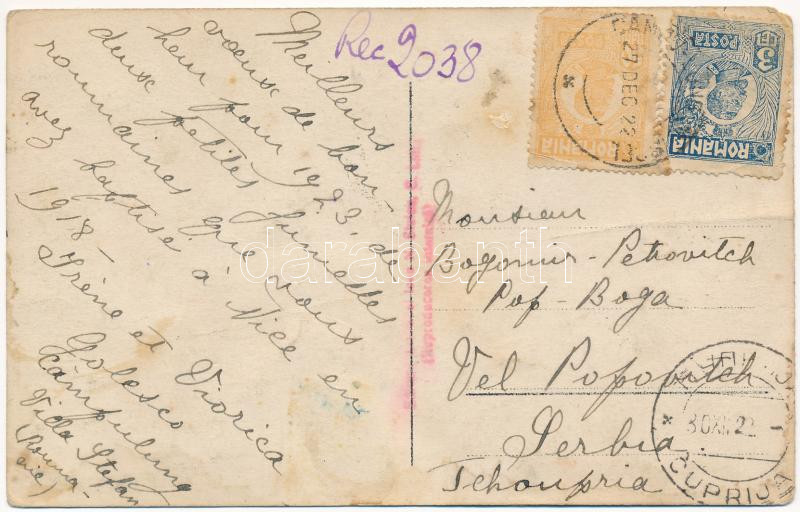 Rec 2038
Meilleurs
voeux de bon-
heur pour 1923, de
deux petites jumelles
roumaines que vous
avez baptisé à Nice en
1918 -
Irène et Viorica
Golesco
Câmpulung
Villa Stefan
(Rouma-
nie)
27 DEC 22
3 LEI
POSTA
ROMANIA
POSTA
ROMANIA
Monsieur
Bogomir - Petrovitch
Pop - Boga
Vel Popovitch
Serbia
Tchoupria
30 XII 22
CUPRIJA
darabanth